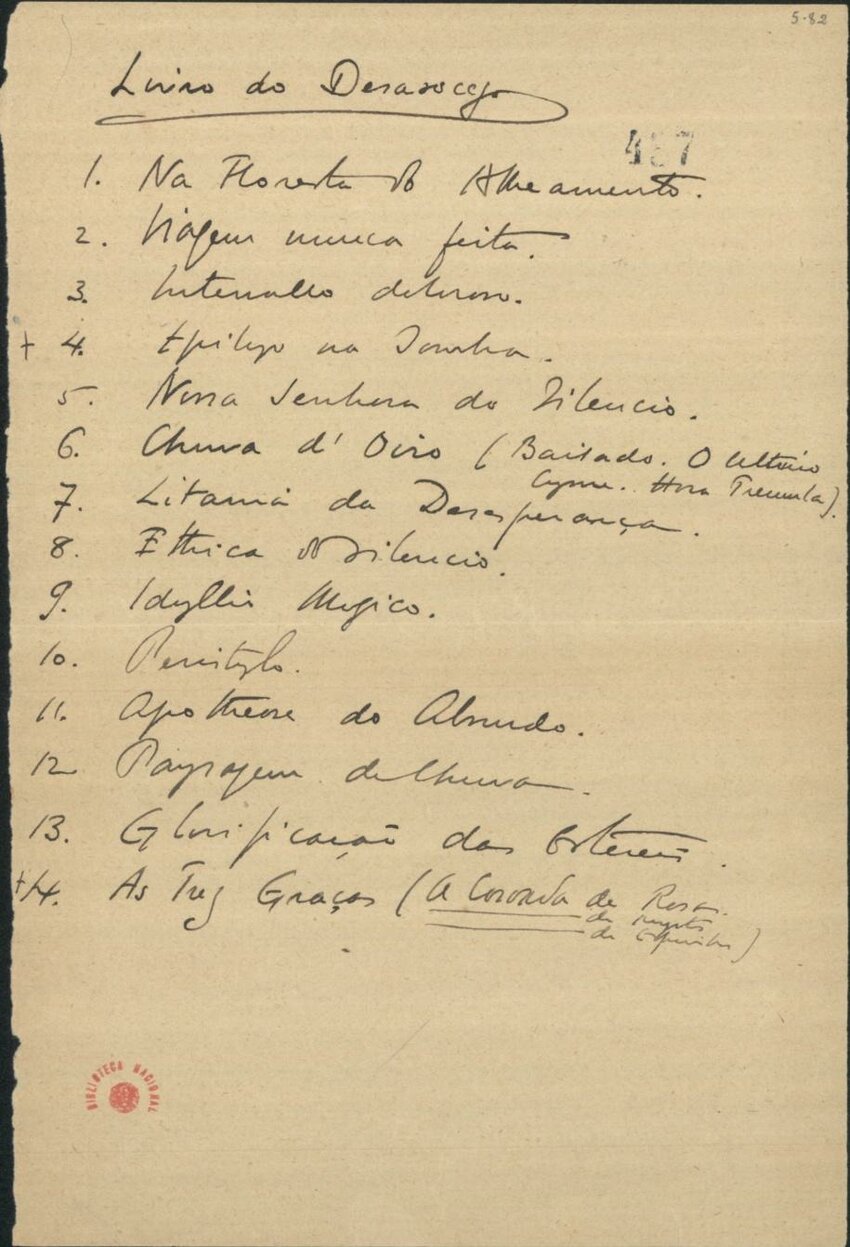 5-82
Livro do Desasocego
4 7
1. Na Floresta do Alheamento.
2. Viagem nunca feita.
3. Intervallo doloroso.
+ 4. Epilogo na Sombra.
5. Nossa Senhora do Silencio.
6. Chuva d'Oiro (Bailado. O Ultimo
Cysne. Hora Tremula).
7. Litania da Desesperança.
8. Ethica do Silencio.
9. Idyllio Magico.
10. Peristylo.
11. Apotheose do Absurdo.
12 Paysagem de Chuva.
13. Glorificação das Estereis.
+ 14. As Trez Graças (A Coroada de Rosas.
de Myrtos
de Espinhos)
BIBLIOTECA NACIONAL